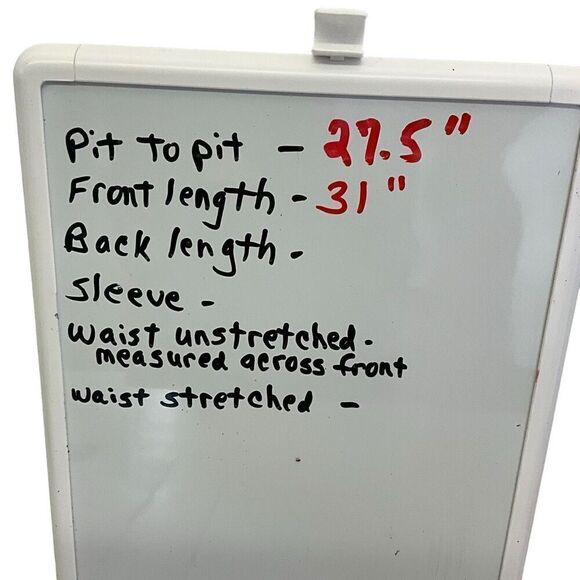 Pit to pit - 27.5"
Front length - 31"
Back length -
Sleeve -
waist unstretched -
measured across front
waist stretched -